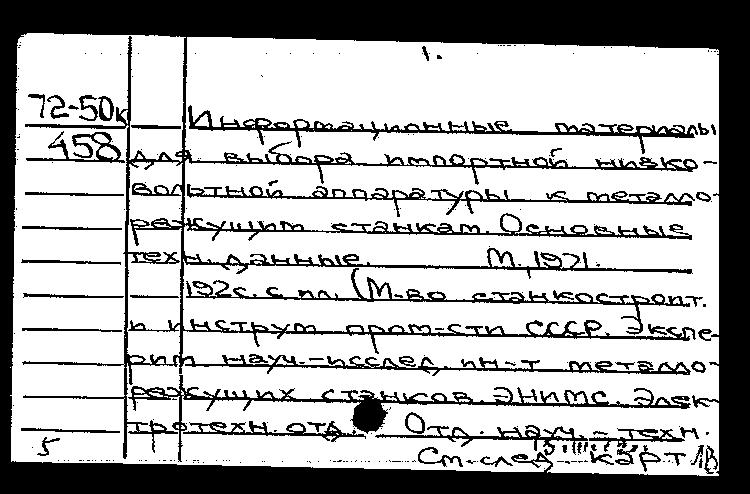 1.
72-50к
Информационные материалы
458 для выбора импортной низко-
вольтной аппаратуры к металло-
режущим станкам. Основные
техн. данные. М., 1971.
192с. с ил. (М-во станкостроит.
и инструм. пром-сти СССР. Экспе-
рим. науч.-исслед. ин-т металло-
режущих станков. ЭНИМС. Элек-
тротехн. отд. Отд. науч.-техн.
5 См. след. карт